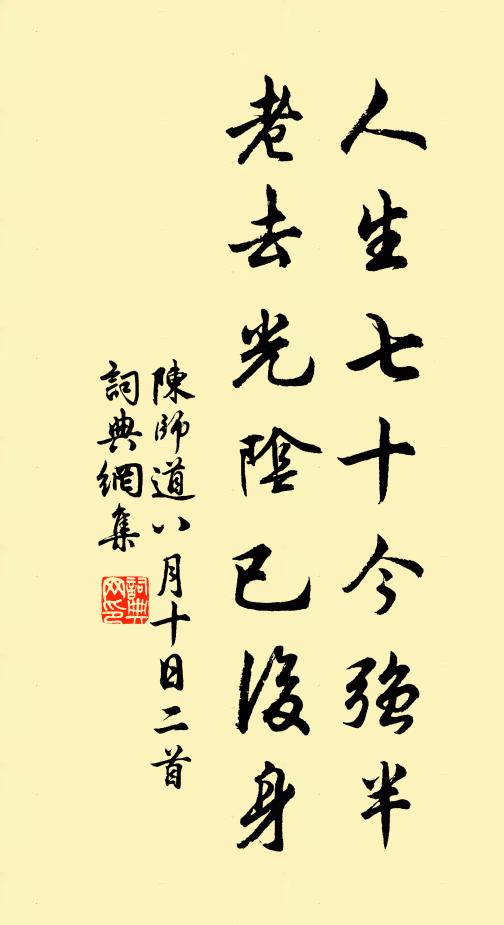 人生七十今強半
老去光陰已後身
陳師道八月十日二首
詞典網集
詞典網印